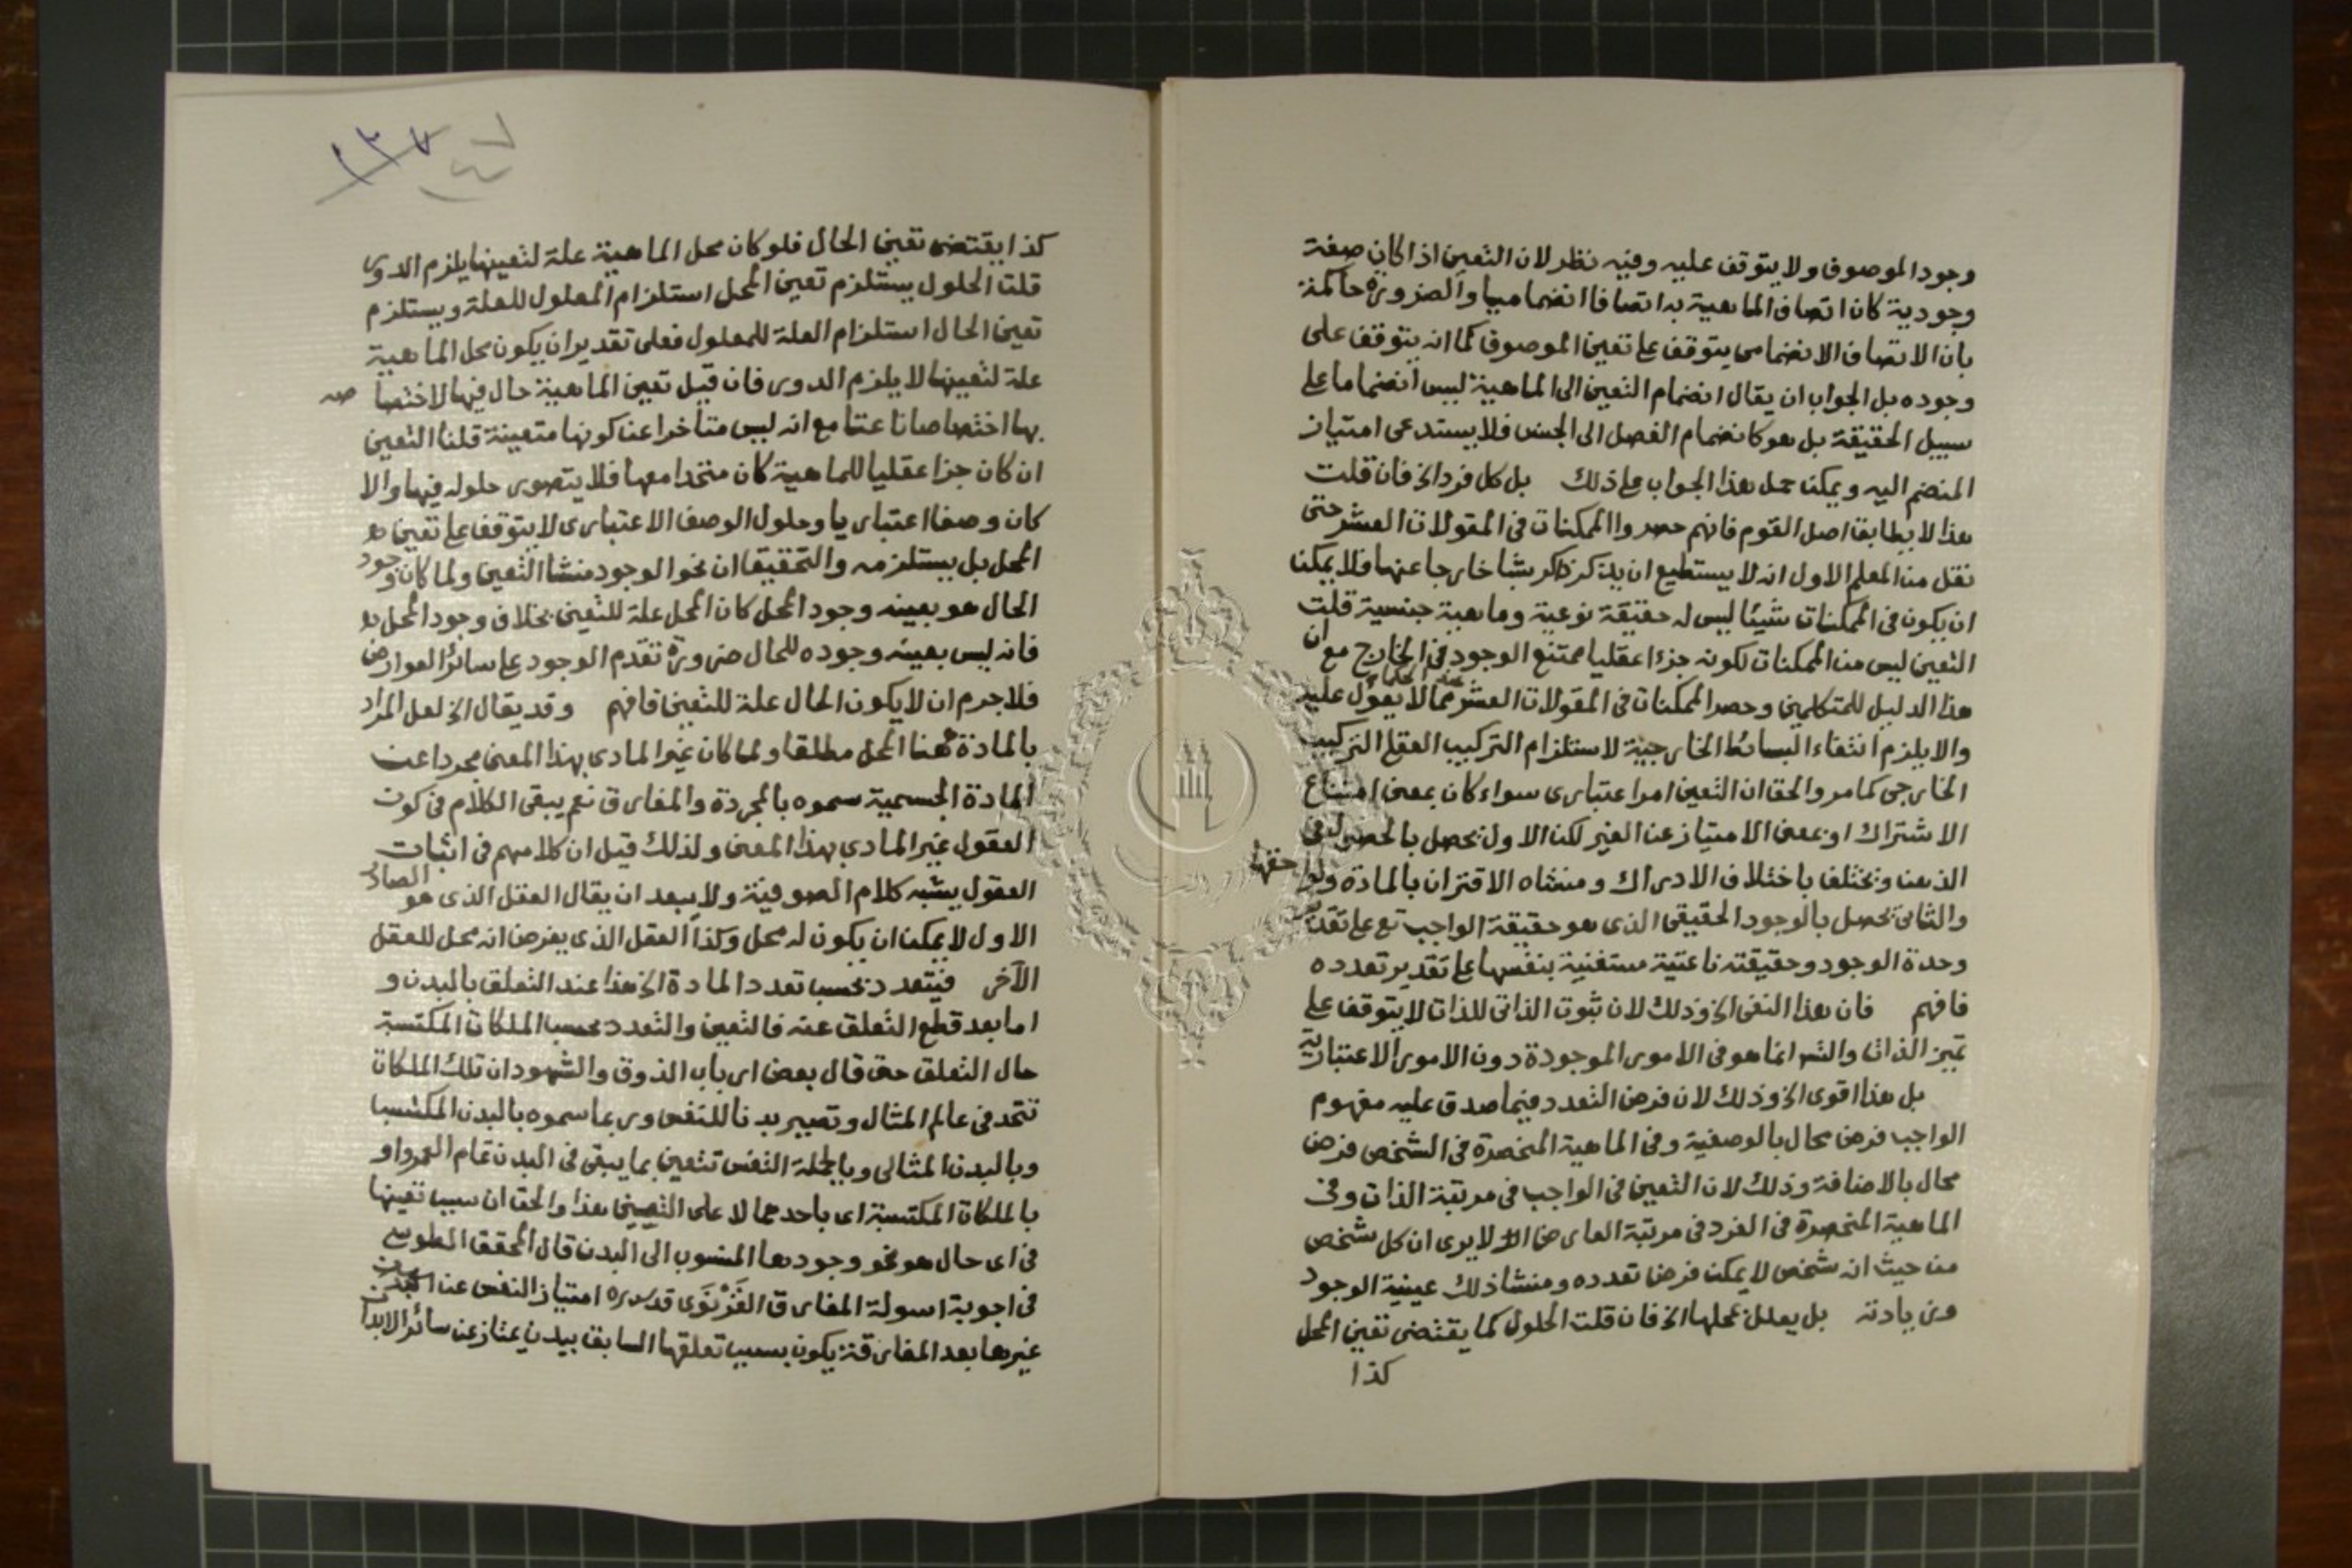 وجود الموصوف ولا يتوقف عليه وفيه نظر لان التعين اذا كان صفة
وجودية كان اتصاف الماهية به اتصافا انضماميا والضرورة حاكمة
بان الاتصاف الانضمامى يتوقف على تعين الموصوف كما انه يتوقف على
وجوده بل الجواب ان يقال انضمام التعين الى الماهية ليس انضماما على
سبيل الحقيقة بل هو كانضمام الفصل الى الجنس فلا يستدعى امتياز
المنضم اليه ويمكن حمل هذا الجواب على ذلك بل كل فرد الخ فان قلت
هذا لا يطابق اصل القوم فانهم حصروا الممكنات فى المقولات العشر حتى
نقل من المعلم الاول انه لا يستطيع ان يذكر ذاكر شيئا خارجا عنها فلا يمكن
ان يكون فى الممكنات شيئا ليس له حقيقة نوعية وماهية جنسية قلت
التعين ليس من الممكنات لكونه جزءا عقليا ممتنع الوجود فى الخارج مع ان
هذا الدليل للمتكلمين وحصر الممكنات فى المقولات العشر عند الحكماء مما لا يعول عليه
والا يلزم انتفاء البسائط الخارجية لاستلزام التركيب العقلى التركيب
الخارجى كما مر والحق ان التعين امر اعتبارى سواء كان بمعنى امتناع
الاشتراك او بمعنى الامتياز عن الغير لكن الاول يحصل بالحصول فى
الذهن ويختلف باختلاف الادراك ومنشاه الاقتران بالمادة ولواحقها
والثانى يحصل بالوجود الحقيقى الذى هو حقيقة الواجب تع على تقدير
وحدة الوجود وحقيقته ناعتية مستغنية بنفسها على تقدير تعدده
فافهم فان هذا النفى الخ وذلك لان ثبوت الذاتى للذات لا يتوقف على
تميز الذات والتسـ انما هو فى الامور الموجودة دون الامور الاعتبارية
بل هذا اقوى الخ وذلك لان فرض التعدد فيما صدق عليه مفهوم
الواجب فرض محال بالوصفية وفى الماهية المنحصرة فى الشخص فرض
محال بالاضافة وذلك لان التعين فى الواجب فى مرتبة الذات وفى
الماهية المنحصرة فى الفرد فى مرتبة العارض الا لا يرى ان كل شخص
من حيث انه شخص لا يمكن فرض تعدده ومنشا ذلك عينية الوجود
وزيادته بل يعلل بمحلها الخ فان قلت الحلول كما يقتضى تعين المحل
كذا
١٣٧ ١٤٧
كذا يقتضى تعين الحال فلو كان محل الماهية علة لتعينها يلزم الدور
قلت الحلول يستلزم تعين المحل استلزام المعلول للعلة ويستلزم
تعين الحال استلزام العلة للمعلول فعلى تقدير ان يكون محل الماهية
علة لتعينها لا يلزم الدور فان قيل تعين الماهية حال فيها لاختصاصه
بها اختصاصا ناعتا مع انه ليس متاخرا عن كونها متعينة قلنا التعين
ان كان جزا عقليا للماهية كان متحدا معها فلا يتصور حلوله فيها والا
كان وصفا اعتباريا وحلول الوصف الاعتبارى لا يتوقف على تعين
المحل بل يستلزمه والتحقيق ان نحو الوجود منشا التعين ولما كان وجود
الحال هو بعينه وجود المحل كان المحل علة للتعين بخلاف وجود المحل
فانه ليس بعينه وجوده للحال ضرورة تقدم الوجود على سائر العوارض
فلا جرم ان لا يكون الحال علة للتعين فافهم وقد يقال الخ لعل المراد
بالمادة ههنا المحل مطلقا ولما كان غير المادى بهذا المعنى مجردا عن
المادة الجسمية سموه بالمجردة والمفارق نعم يبقى الكلام فى كون
العقول غير المادى بهذا المعنى ولذلك قيل ان كلامهم فى اثبات
العقول يشبه كلام الصوفية ولا يبعد ان يقال العقل الذى هو الصادر
الاول لا يمكن ان يكون له محل وكذا العقل الذى يفرض انه محل للعقل
الآخر فيتعدد بحسب تعدد المادة الخ هذا عند التعلق بالبدن و
اما بعد قطع التعلق عنه فالتعين والتعدد بحسب الملكات المكتسبة
حال التعلق حتى قال بعض ارباب الذوق والشهود ان تلك الملكات
تتحد فى عالم المثال وتصير بدنا للنفس وربما سموه بالبدن المكتسب
وبالبدن المثالى وبالجملة النفس تتعين بما يبقى فى البدن تمام العمر او
بالملكات المكتسبة اى باحدهما لا على التعيين هذا والحق ان سبب تعينها
فى اى حال هو نحو وجودها المنسوب الى البدن قال المحقق الطوسى
فى اجوبة اسولة المفارق القزنوى قدس سره امتياز النفس عن
غيرها بعد المفارقة يكون بسبب تعلقها السابق ببدن يمتاز عن سائر الابدان